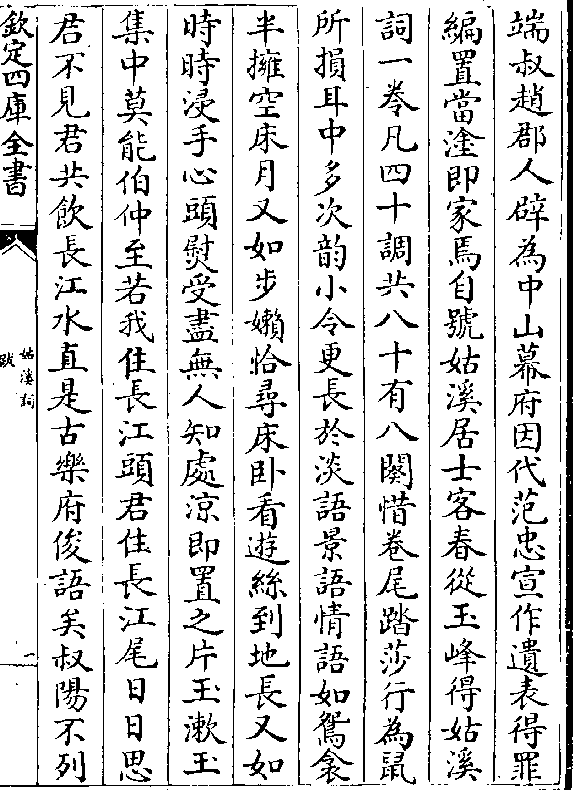 端叔趙郡人辟為中山幕府因代范忠宣作遺表得罪
編置當塗即家焉自號姑溪居士客春從玉峰得姑溪
詞一卷凡四十調共八十有八闋惜卷尾踏莎行為鼠
所損耳中多次韵小令更長於淡語景語情語如鴛衾
半擁空床月又如步嬾恰尋床卧看遊絲到地長又如
時時浸手心頭熨受盡無人知處凉即置之片玉漱玉
集中莫能伯仲至若我住長江頭君住長江尾日日思
君不見君共飲長江水直是古樂府俊語矣叔陽不列
欽定四庫全書
姑溪詞
跋
一